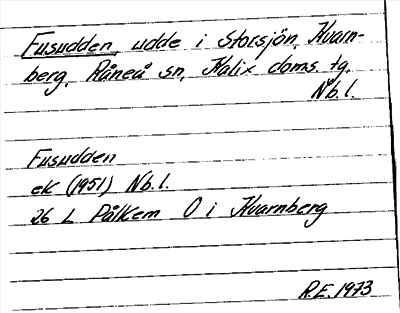 Fusudden, udde i Storsjön, Kvarn-
berg, Råneå sn, Kalix doms. tg,
Nb. l.
Fusudden
ek (1951) Nb. l.
26 L Pålkem O i Kvarnberg
R.E. 1973